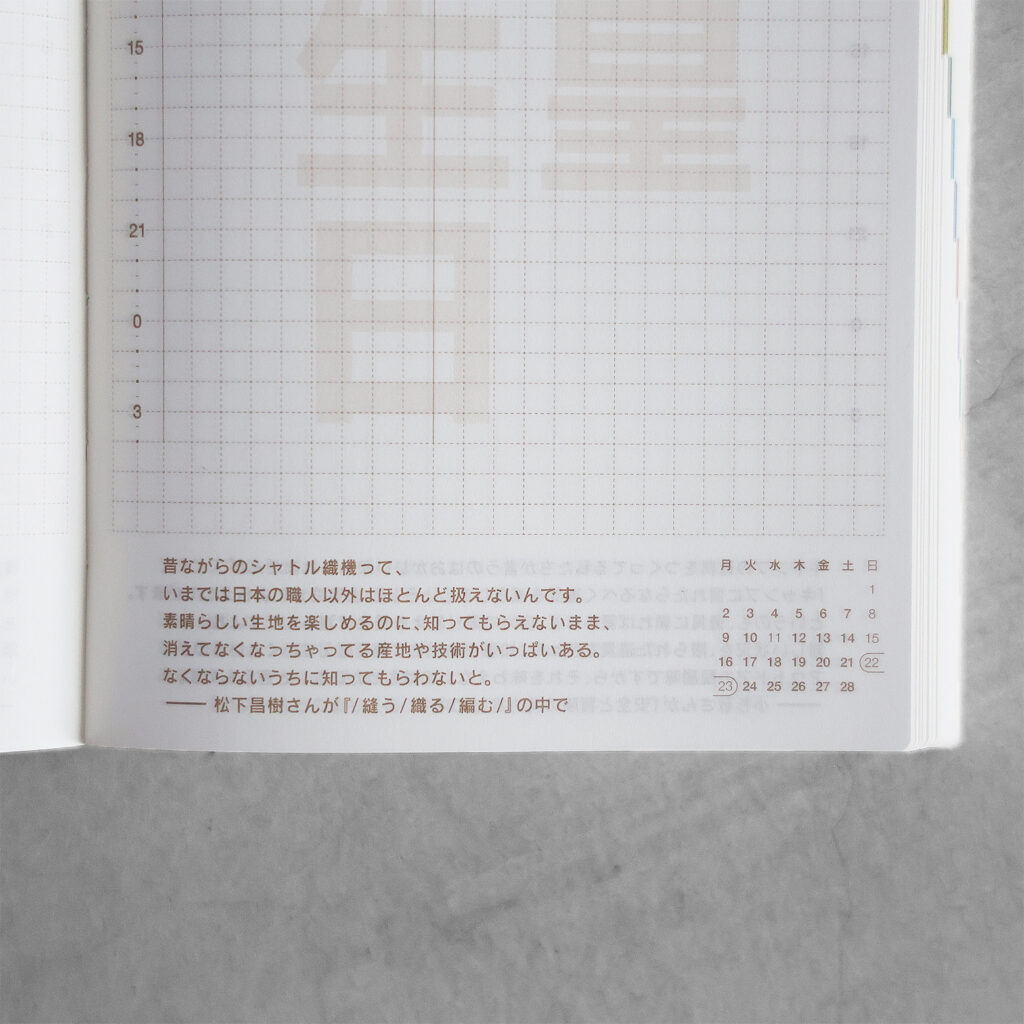 15
18
21
0
3
皇
生
日
昔ながらのシャトル織機って、
いまでは日本の職人以外はほとんど扱えないんです。
素晴らしい生地を楽しめるのに、知ってもらえないまま、
消えてなくなっちゃってる産地や技術がいっぱいある。
なくならないうちに知ってもらわないと。
—— 松下昌樹さんが『/縫う/織る/編む/』の中で
月 火 水 木 金 土 日
1
2 3 4 5 6 7 8
9 10 11 12 13 14 15
16 17 18 19 20 21 22
23 24 25 26 27 28